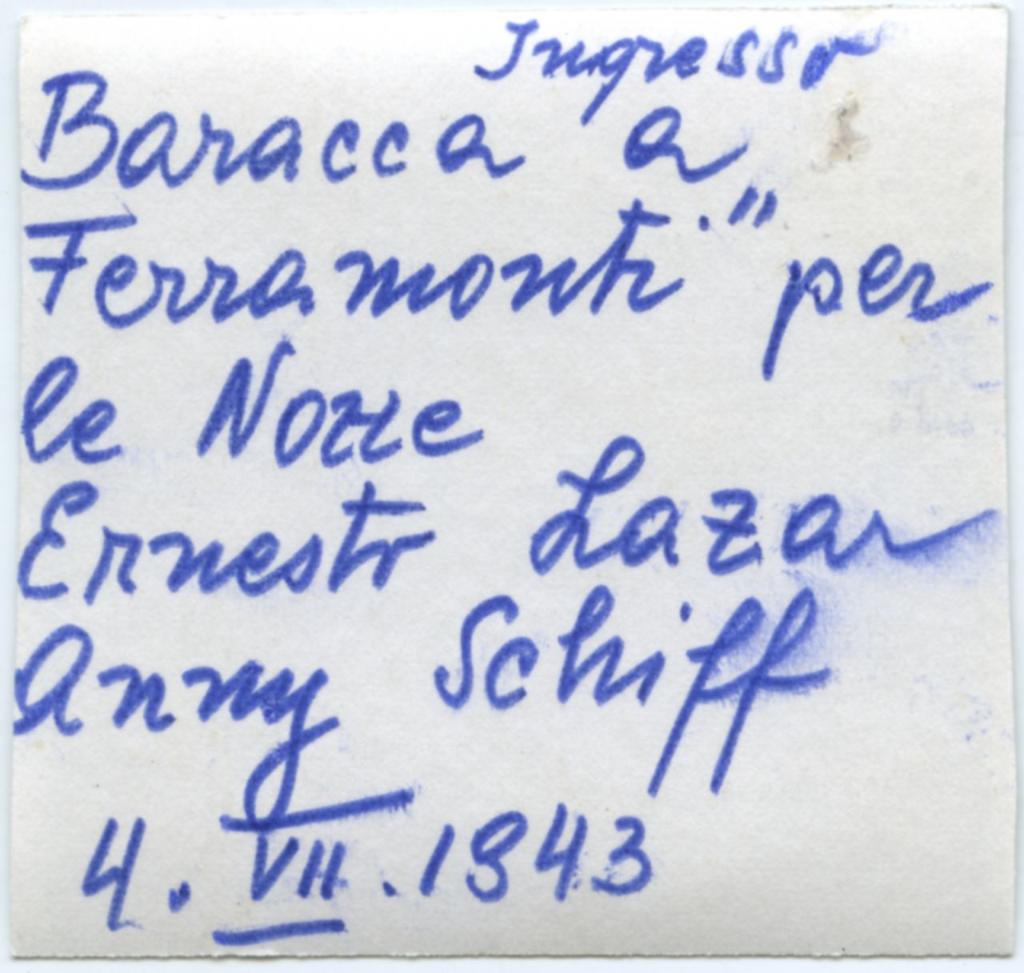 Ingresso
Baracca a
Ferramonti" per
le Nozze
Ernesto Lazar
Anny Schiff
4. VII. 1943